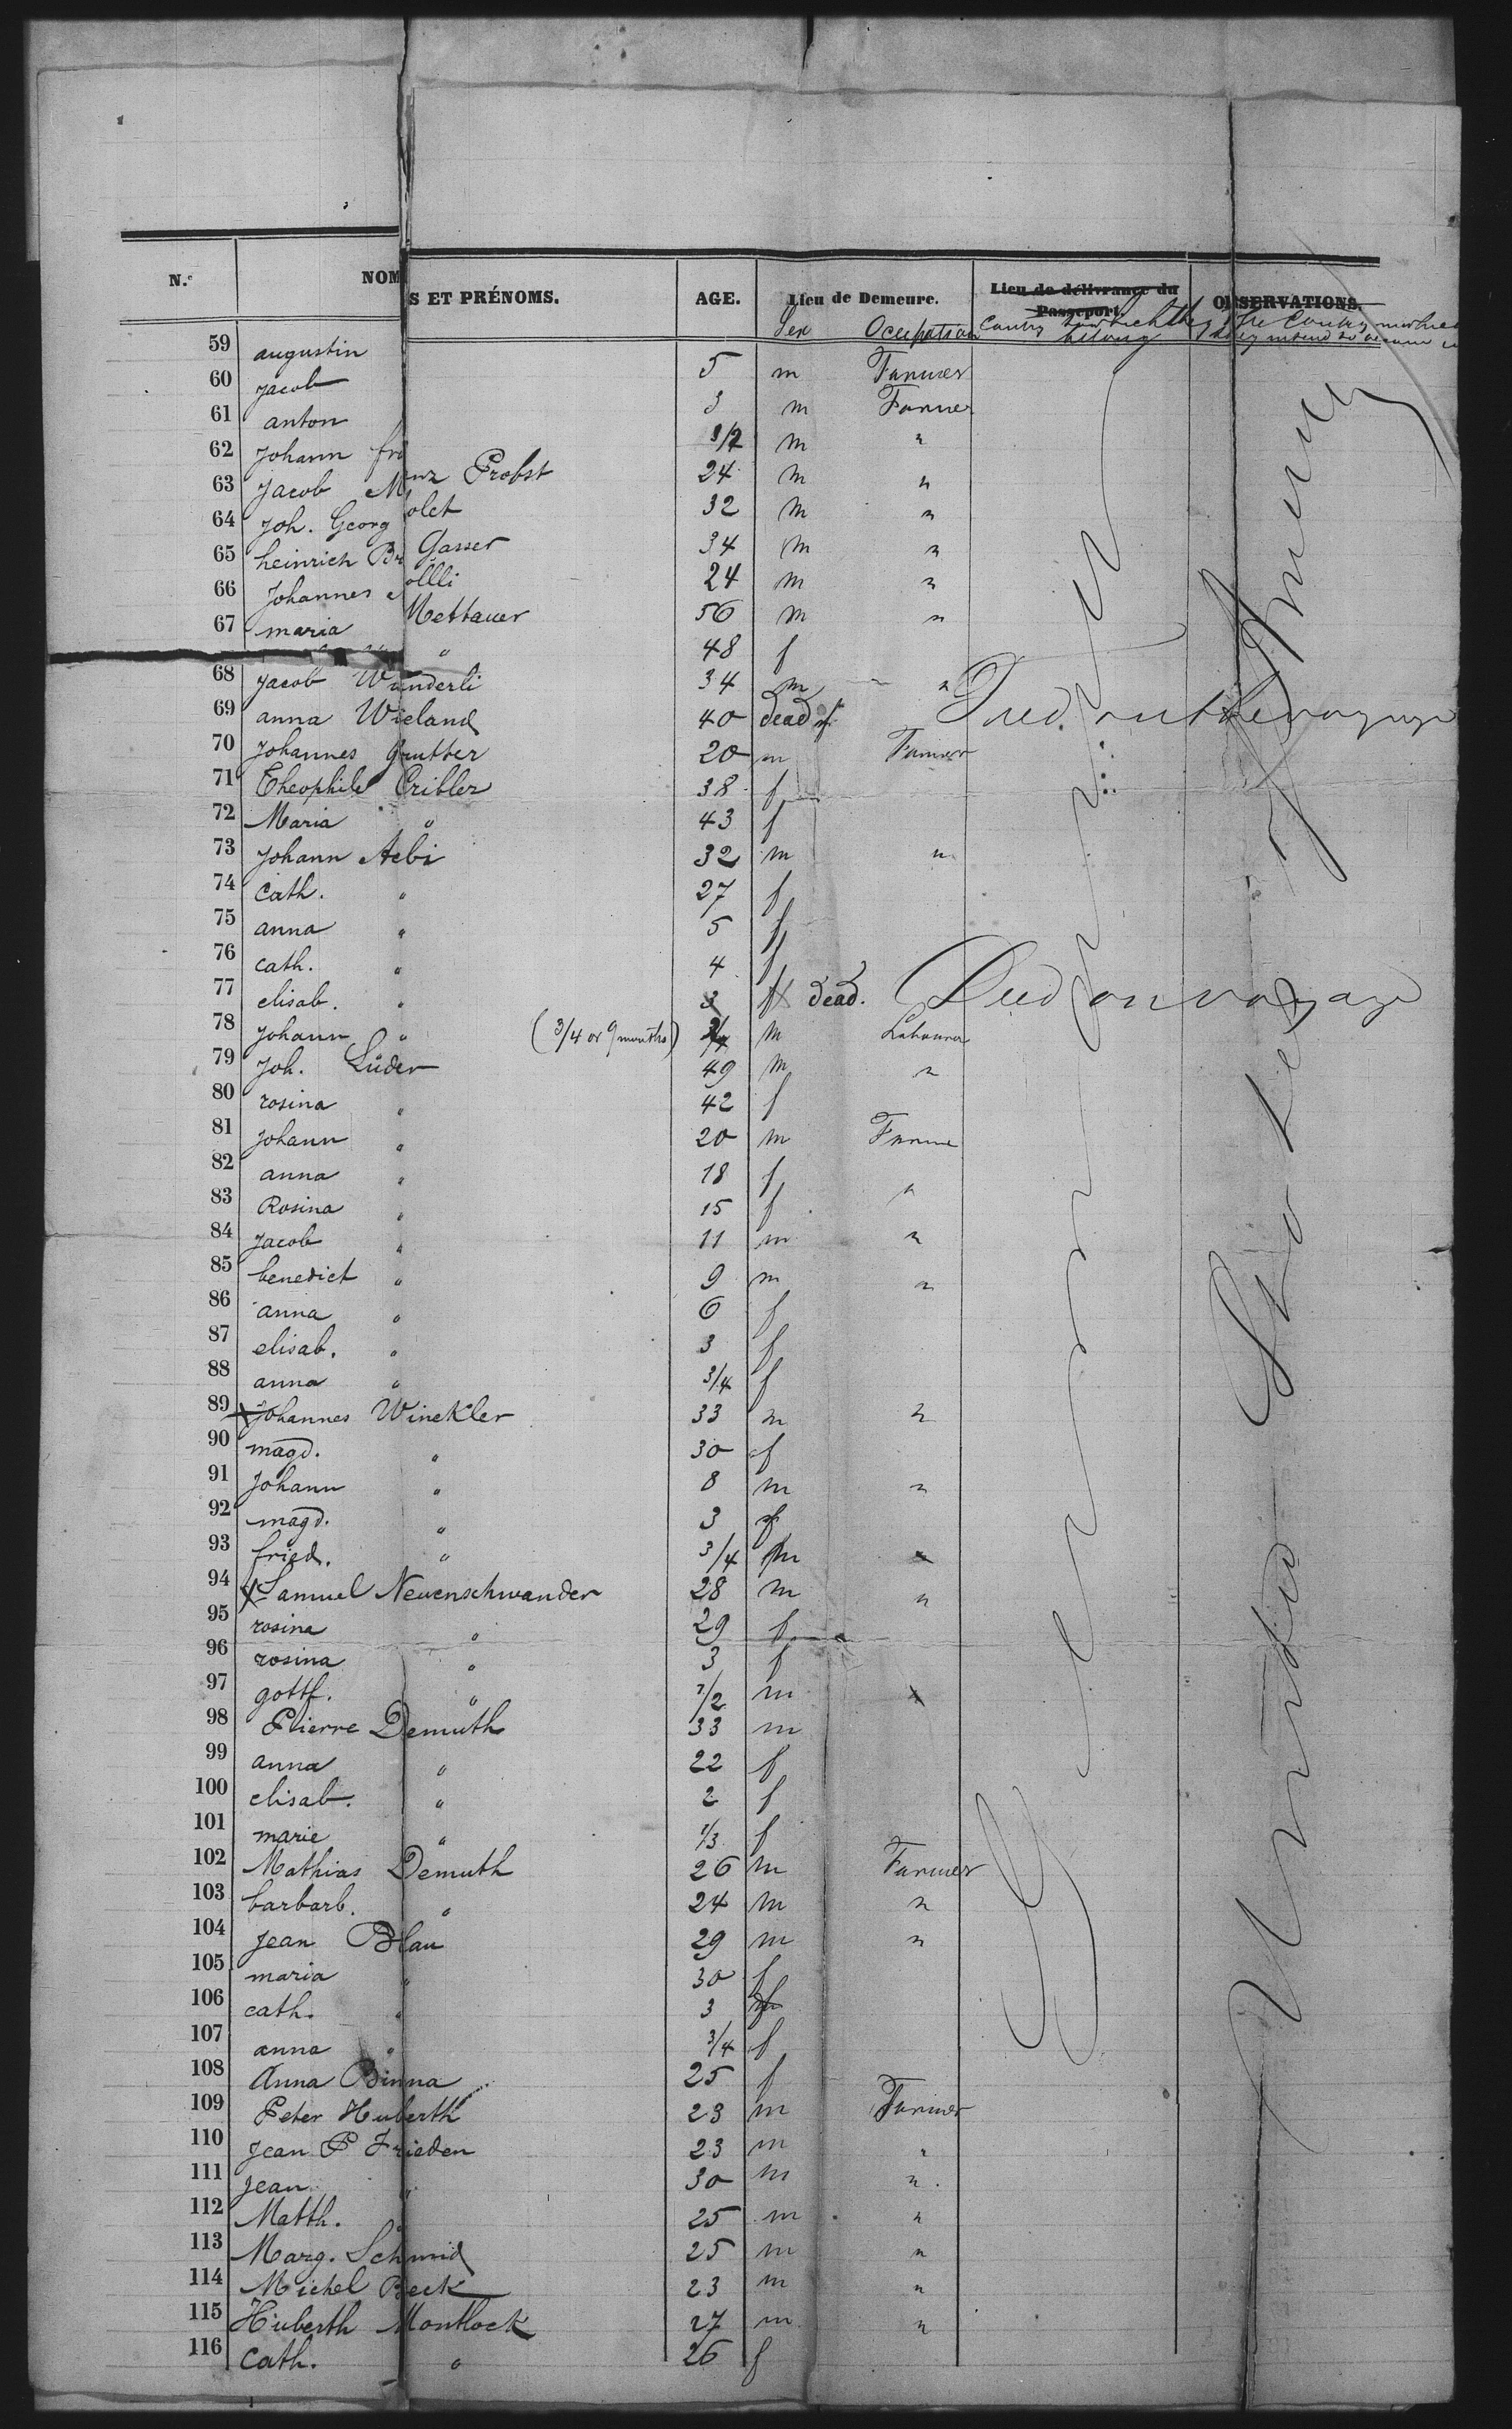 N.º NOMS ET PRÉNOMS. AGE. Lieu de Demeure. Lieu de délivrance du Passeport. OBSERVATIONS.
Sex Occupation Country to which they belong The Country in which they intend to become in
59 augustin 5 m Farmer
60 Jacob 3 m Farmer
61 anton 3/4 m "
62 Johann franz Probst 24 m "
63 Jacob Molet 32 m "
64 Joh. Georg Gasser 34 m "
65 heinrich Brollli 24 m "
66 Johannes Mettauer 56 m "
67 maria " 48 f
68 Jacob Wunderli 34 m "
69 anna Wieland 40 dead f Died on the voyage
70 Johannes Grutter 20 m Farmer
71 Theophile Cribler 38 f
72 Maria " 43 f
73 Johann Aebi 32 m "
74 Cath. " 27 f
75 anna " 5 f
76 cath. " 4 f
77 elisab. " 3 f dead. Died on voyage
78 Johann " (3/4 or 9 months) 3/4 m Labourer
79 Joh. Lüder 49 m "
80 rosina " 42 f
81 Johann " 20 m Farmer
82 anna " 18 f
83 Rosina " 15 f "
84 Jacob " 11 m "
85 benedict " 9 m "
86 anna " 6 f
87 elisab. " 3 f
88 anna " 3/4 f
89 Johannes Winckler 33 m "
90 magd. " 30 f
91 Johann " 8 m "
92 magd. " 3 f
93 fried. " 3/4 m "
94 Samuel Neuenschwander 28 m "
95 rosina " 29 f
96 rosina " 3 f
97 gottf. " 1/2 m
98 Pierre Demuth 33 m
99 anna " 22 f
100 elisab. " 2 f
101 marie " 1/3 f
102 Mathias Demuth 26 m Farmer
103 barbarb. " 24 m "
104 Jean Blau 29 m "
105 maria " 30 f
106 cath. " 3 f
107 anna " 3/4 f
108 Anna Binna 25 f
109 Peter Huberth 23 m Farmer
110 Jean P Frieden 23 m "
111 Jean " 30 m "
112 Matth. " 25 m "
113 Marg. Schmid 25 m "
114 Michel Beck 23 m "
115 Huberth Montlock 27 m "
116 Cath. " 26 f
United States of America